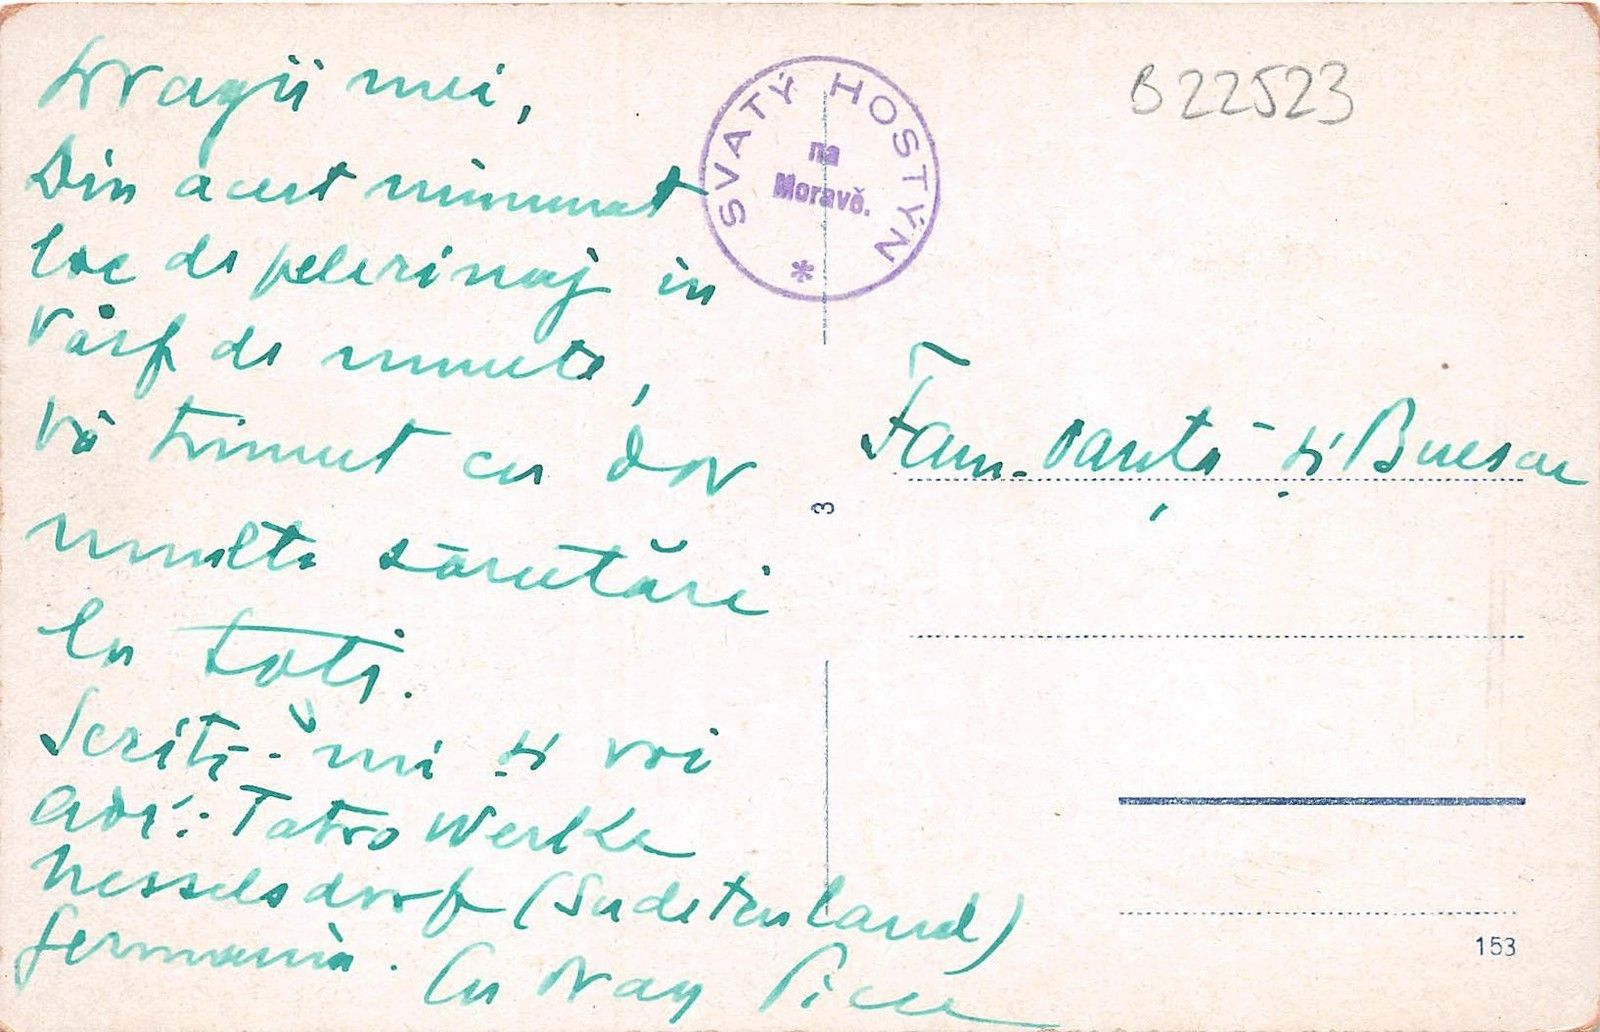 Dragii mei,
Din acest minunat
loc de pelerinaj în
vârf de munte,
vă trimet cu dor
multe sărutări
la toți.
Scriți-mi și voi
adr.: Tatra Werke
Nesselsdorf (Sudetenland)
Germania. Cu drag Picu
SVATÝ HOSTÝN
na
Moravě.
*
B22523
Fam. și Buescu
3
153